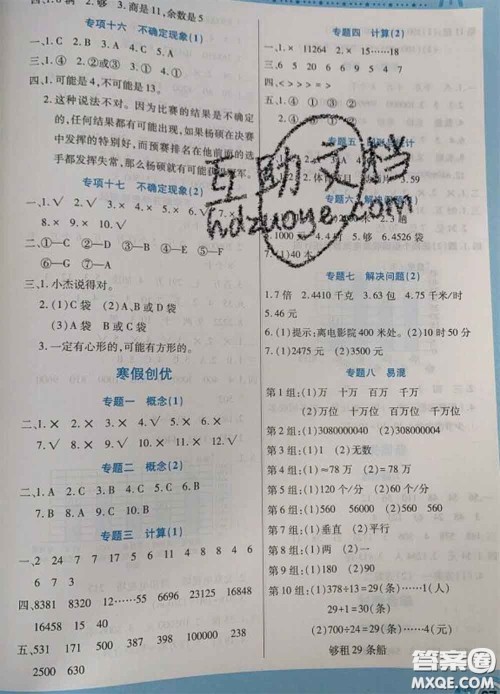 2. 够 3. 商是11,余数是5
专项十六 不确定现象(1)
一、1. C 2. B 3. A 4. C 5. A 6. C
三、1. ④ 2. ②或③ 3. ① 4. ① 5. ②
四、1. 可能是4,不可能是13。
2. 这种说法不对。因为比赛的结果是不确定
的,任何结果都有可能出现,如果杨硕在决赛
中发挥的特别好,而预赛排名在他前面的选
手都发挥失常,那么杨硕就有可能
专项十七 不确定现象(2)
8. × 9. × 10. ×
二、①—C ②—A ③—D ④—B ⑤—F
⑥—G ⑦—E
三、1. 小杰说得对。
2. (1)C袋 (2)A或D袋
(3)A或B袋 (4)D袋
3. 一定有心形的,可能有方形的。
寒假创优
专题一 概念(1)
二、1. × 2. × 3. √ 4. × 5. × 6. √
7. √ 8. × 9. × 10. × 11. × 12. √
专题二 概念(2)
三、1. A 2. B 3. C 4. C 5. A 6. B
7. C 8. B 9. C 10. A
专题三 计算(1)
一、2 24 7 7 17 5 4 11 4 8 4 8
6 7 3
四、8381 8320 12……55 6696 23125 16848
16458 15 40
五、531 500 387 398 100000 238
2500 630
专题四 计算(2)
一、1. × 11264 2. × 15……18
三、6 5 20 6 9 5 4 7
四、< > > > = >
五、1. ④ ① ③ ②
专题五
59
专题六
5. 1000元
6. 4526袋
7. (1)40本
专题七 解决问题(2)
1. 7倍 2. 4410千克 3. 63包 4. 75千米/时
5. 46元
6. (1)提示:离电影院400米处。(2)10时50分
7. (1)2475元 (2)3500元
专题八 易混
第1组:(1)万 十万 百万 千万
(2)万位 十万位 百万位 千万位
第2组:(1)308000040 (2)308000004
第3组:(1)3 (2)无数
第4组:(1)≈78万 (2)=78万
第5组:(1)120个/分 (2)60个/分
第6组:560 560
第7组:(1)垂直 (2)平行
第8组:(1)两 (2)一
第9组:(1)180 (2)180
第10组:(1)378÷13=29(条)……1(人)
29+1=30(条)
(2)700÷24=29(条)……4(元)
够租29条船
互助文档
hdzuoye.com
答案圈
MXQE.COM